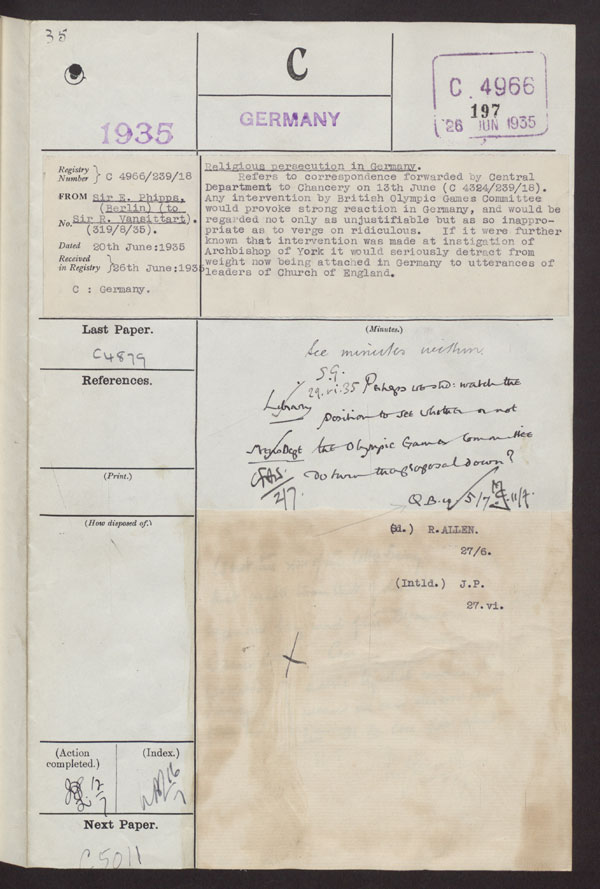 35
C
1935
GERMANY
C 4966
197
26 JUN 1935
Registry
Number } C 4966/239/18
FROM Sir E. Phipps.
(Berlin) (to
Sir R. Vansittart).
No. (319/8/35).
Dated 20th June:1935
Received
in Registry } 26th June:1935
C : Germany.
Religious persecution in Germany.
Refers to correspondence forwarded by Central
Department to Chancery on 13th June (C 4324/239/18).
Any intervention by British Olympic Games Committee
would provoke strong reaction in Germany, and would be
regarded not only as unjustifiable but as so inappro-
priate as to verge on ridiculous. If it were further
known that intervention was made at instigation of
Archbishop of York it would seriously detract from
weight now being attached in Germany to utterances of
leaders of Church of England.
Last Paper.
C4879
References.
(Print.)
(How disposed of.)
(Action
completed.)
12/7
(Index.)
16/7
Next Paper.
C.5011
(Minutes.)
See minutes within.
S.G.
29.vi.35
Library
News Dept
2/7
Perhaps we shd: watch the
position to see whether or not
the Olympic Games Committee
do turn the proposal down?
5/7 11/7.
(Sd.) R.ALLEN.
27/6.
(Intld.) J.P.
27.vi.